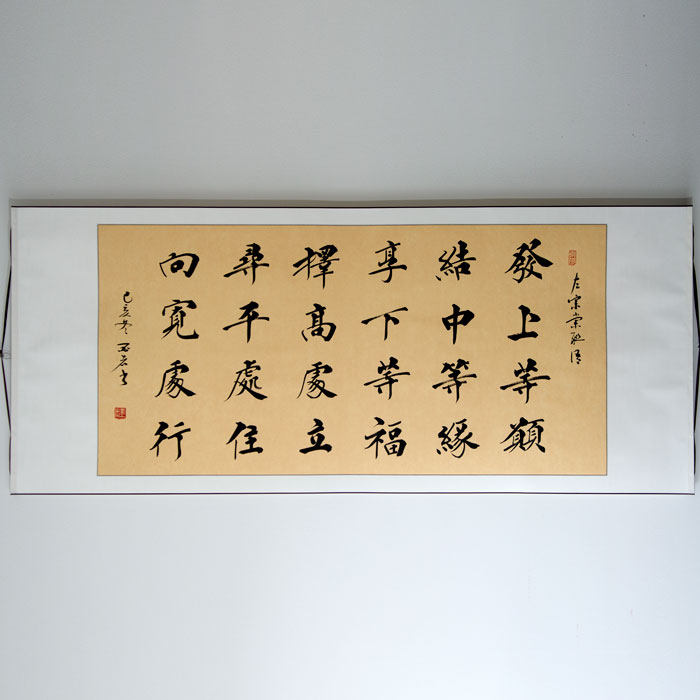 左宗棠聯語
發上等願
結中等緣
享下等福
擇高處立
尋平處住
向寬處行
己亥冬